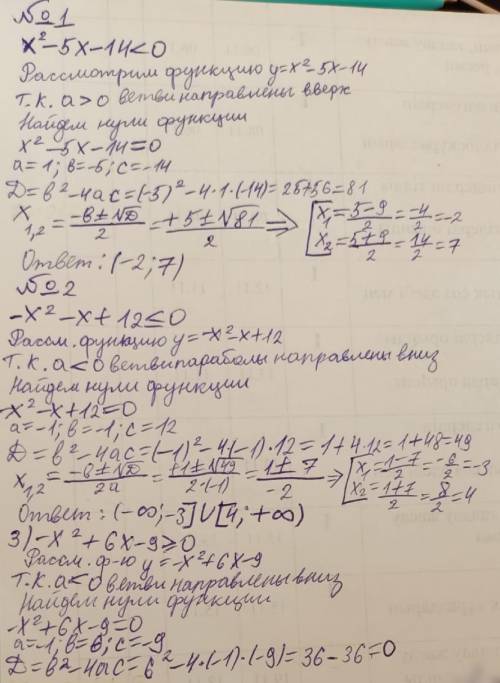 №1
x² - 5x - 14 < 0
Рассмотрим функцию y = x² - 5x - 14
Т.К. a > 0 ветви направлены вверх
Найдем нули функции
x² - 5x - 14 = 0
a = 1; в = -5; c = -14
D = в² - 4ac = (-5)² - 4·1·(-14) = 25 + 56 = 81
x₁,₂ = (-в ± √D)/2 = (+5 ± √81)/2 ⇒ [x₁ = (5-9)/2 = -4/2 = -2
x₂ = (5+9)/2 = 14/2 = 7
Ответ: (-2; 7)
№2
-x² - x + 12 ≤ 0
Рассм. функцию y = -x² - x + 12
Т.К. a < 0 ветви параболы направлены вниз
Найдем нули функции
-x² - x + 12 = 0
a = -1; в = -1; c = 12
D = в² - 4ac = (-1)² - 4(-1)·12 = 1 + 4·12 = 1 + 48 = 49
x₁,₂ = (-в ± √D)/2a = (+1 ± √49)/2·(-1) = (1 ± 7)/-2 ⇒ [x₁ = (1-7)/2 = -6/2 = -3
x₂ = (1+7)/2 = 8/2 = 4
Ответ: (-∞; -3] U [4; +∞)
3) -x² + 6x - 9 ≥ 0
Рассм. ф-ю y = -x² + 6x - 9
Т.К. a < 0 ветви направлены вниз
Найдем нули функции
-x² + 6x - 9 = 0
a = -1; в = 6; c = -9
D = в² - 4ac = 6² - 4·(-1)·(-9) = 36 - 36 = 0